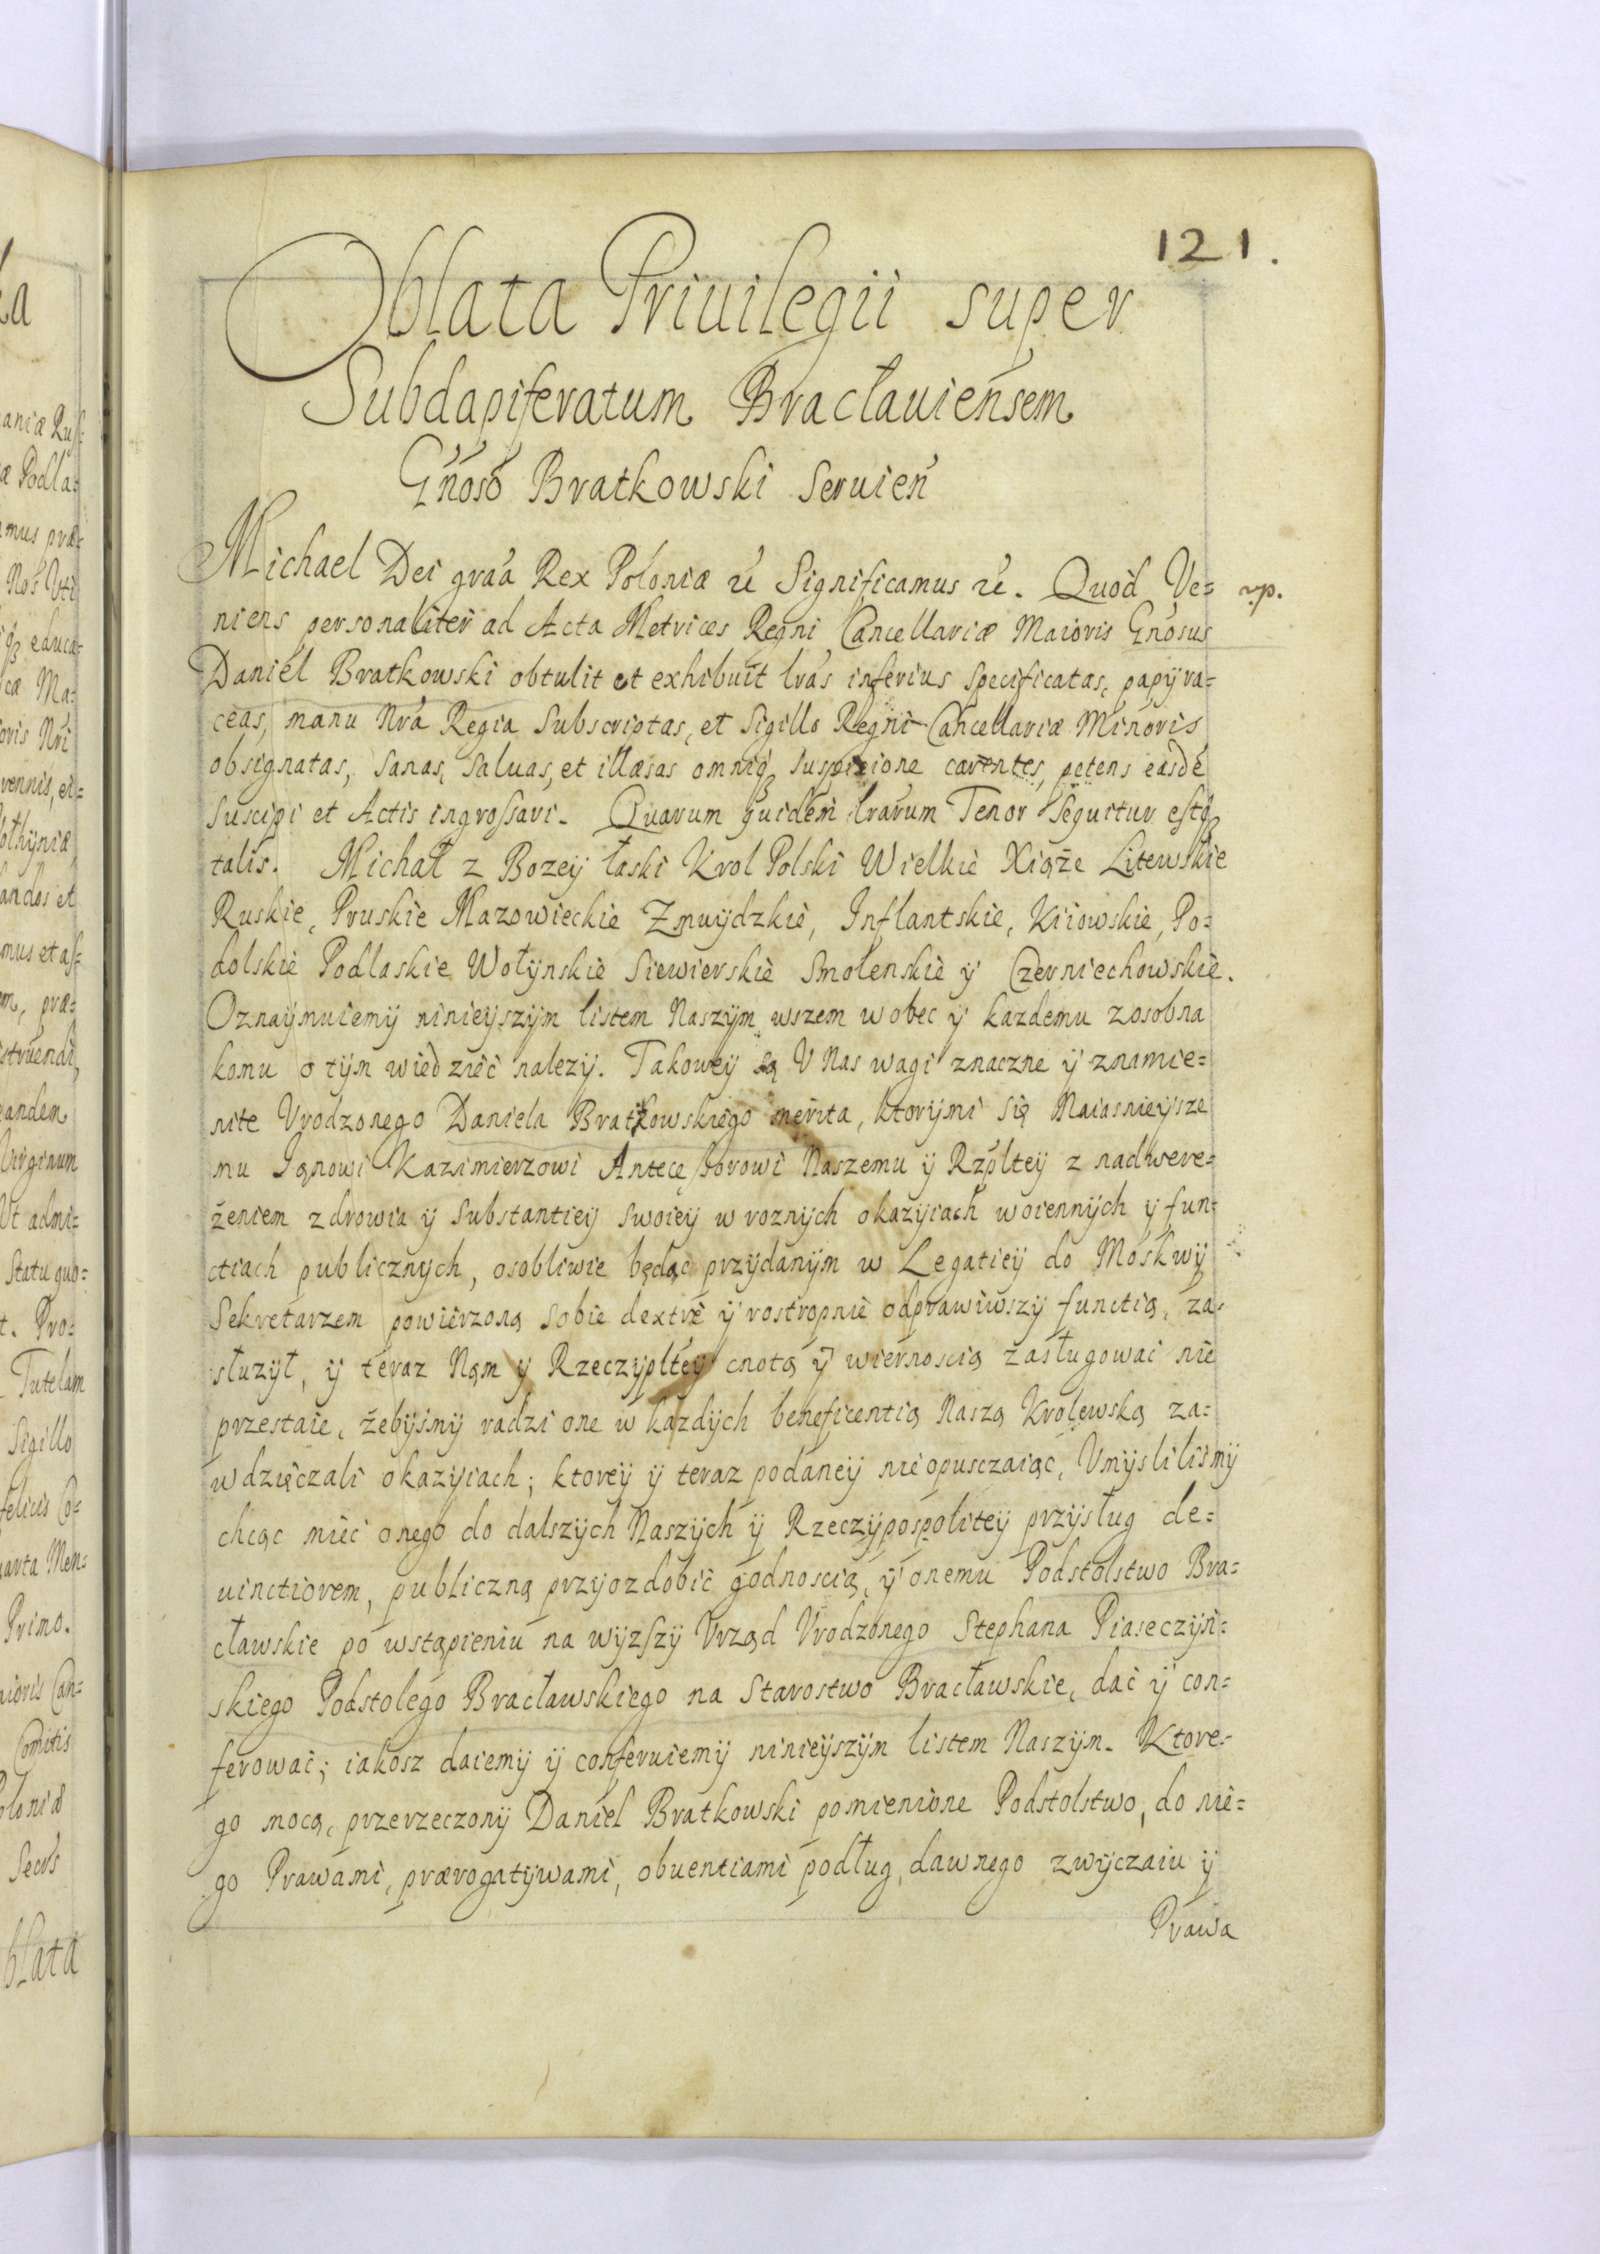 121.
Oblata Priuilegii super
Subdapiferatum Bracłauiensem
Gñosó Bratkowski Seruień
Michael Dei graa Rex Poloniæ &c Significamus &c. Quod Ve=
niens personaliter ad Acta Metrices Regni Cancellariæ Maioris Gnosus
Daniel Bratkowski obtulit et exhibuit lras inferius specificatas, papyra=
ceas, manu Nra Regia Subscriptas, et Sigillo Regni Cancellariæ Minoris
obsignatas, Sanas, Saluas, et illæsas omniq3 suspicione carentes, petens easdē
Suscipi et Actis ingrossari. Quarum quidem lrarum Tenor Sequitur estq3
talis. Michał z Bozey łaski Krol Polski Wielkie Xiąże Litewskie
Ruskie, Pruskie Mazowieckie Zmuydzkie, Inflantskie, Kiiowskie, Po=
dolskie Podlaskie Wołynskie Siewierskie Smolenskie y Czerniechowskie.
Oznaymuiemy ninieyszym listem Naszym wszem wobec y kazdemu zosobna
komu o tym wiedzieć nalezy. Takowey są U Nas wagi znaczne y znamie=
nite Vrodzonego Daniela Bratkowskiego merita, ktorymi się Naiasnieysze
mu Janowi Kazimierzowi Antecessorowi Naszemu y Rzpltey z nadwere=
żeniem zdrowia y Substantiey swoiey w roznych okazyiach woiennych y fun=
ctiach publicznych, osobliwie będąc przydanym w Legatiey do Moskwy
Sekretarzem powierzoną sobie dextre y rostropnie odprawiwszy functią, za=
słuzył, y teraz Nam y Rzeczypltey cnotą y wiernoscią zasługować nie
przestaie, żebyśmy radzi one w kazdych beneficentią Naszą Krolewską za=
wdzięczali okazyiach; ktorey y teraz podaney nieopusczaiąc, Vmyslilismy
chcąc mieć onego do dalszych Naszych y Rzeczypospolitey przysług de=
uinctiorem, publiczną przyozdobić godnoscią, y onemu Podstolstwo Bra=
cławskie po wstąpieniu na wyzszy Vrząd Vrodzonego Stephana Piaseczyń=
skiego Podstolego Bracławskiego na Starostwo Bracławskie, dać y con=
ferować; iakosz daiemy y conferuiemy ninieyszym listem Naszym. Ktore=
go mocą, przerzeczony Daniel Bratkowski pomienione Podstolstwo, do nie=
go Prawami, prærogatywami, obuentiami podług dawnego zwyczaiu y
Prawa